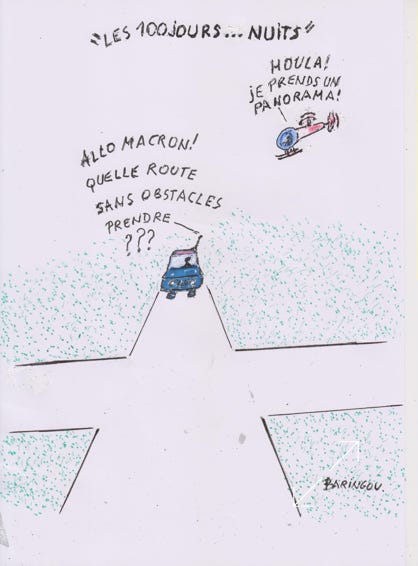 "LES 100JOURS... NUITS"
HOULA!
JE PRENDS UN
PANORAMA!
ALLO MACRON!
QUELLE ROUTE
SANS OBSTACLES
PRENDRE
???
BARINGOU